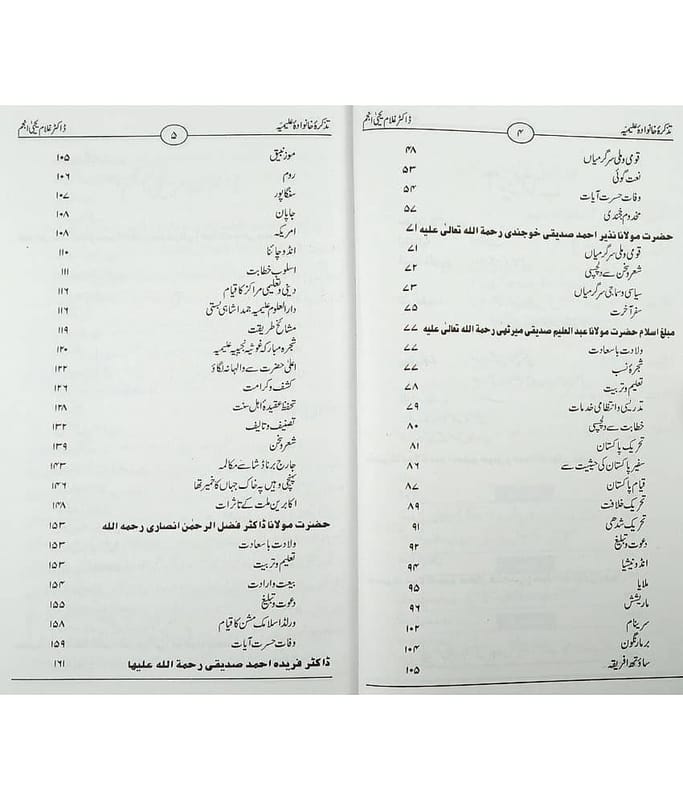 تذکرۂ خانوادۂ علیمیہ ۴ ڈاکٹر غلام یحییٰ انجم
قومی و ملی سرگرمیاں ۴۸
نعت گوئی ۵۳
وفات حسرت آیات ۵۴
مخدوم خجندی ۵۷
حضرت مولانا نذیر احمد صدیقی خوجندی رحمة الله تعالیٰ علیہ ۷۱
قومی و ملی سرگرمیاں ۷۱
شعر و سخن سے دلچسپی ۷۲
سیاسی و سماجی سرگرمیاں ۷۳
سفر آخرت ۷۵
مبلغ اسلام حضرت مولانا عبد العلیم صدیقی میرٹھی رحمة الله تعالیٰ علیہ ۷۷
ولادت باسعادت ۷۷
شجرۂ نسب ۷۷
تعلیم و تربیت ۷۸
تدریسی و انتظامی خدمات ۷۹
خطابت سے دلچسپی ۸۰
تحریک پاکستان ۸۱
سفیر پاکستان کی حیثیت سے ۸۶
قیام پاکستان ۸۷
تحریک خلافت ۸۹
تحریک شدھی ۹۱
دعوت و تبلیغ ۹۲
انڈونیشیا ۹۴
ملایا ۹۵
ماریشش ۹۶
سرینام ۱۰۲
برما رنگون ۱۰۴
ساؤتھ افریقہ ۱۰۵
تذکرۂ خانوادۂ علیمیہ ۵ ڈاکٹر غلام یحییٰ انجم
موزنبیق ۱۰۵
روم ۱۰۶
سنگاپور ۱۰۷
جاپان ۱۰۸
امریکہ ۱۰۸
انڈو چائنا ۱۱۰
اسلوب خطابت ۱۱۱
دینی و تعلیمی مراکز کا قیام ۱۱۶
دار العلوم علیمیہ جمدا شاہی بستی ۱۱۶
مشائخ طریقت ۱۱۹
شجرہ مبارکہ غوثیہ نجیبیہ علیمیہ ۱۲۰
اعلیٰ حضرت سے والہانہ لگاؤ ۱۲۲
کشف و کرامت ۱۲۶
تحفظ عقیدۂ اہل سنت ۱۲۸
تصنیف و تالیف ۱۳۲
شعر و سخن ۱۳۹
جارج برناڈ شا سے مکالمہ ۱۴۳
پہنچی وہیں پہ خاک جہاں کا خمیر تھا ۱۴۶
اکابرین ملت کے تاثرات ۱۴۸
حضرت مولانا ڈاکٹر فضل الرحمٰن انصاری رحمه الله ۱۵۳
ولادت باسعادت ۱۵۳
تعلیم و تربیت ۱۵۳
بیعت و ارادت ۱۵۴
دعوت و تبلیغ ۱۵۵
ورلڈ اسلامک مشن کا قیام ۱۵۸
وفات حسرت آیات ۱۵۹
ڈاکٹر فریدہ احمد صدیقی رحمة الله علیها ۱۶۱